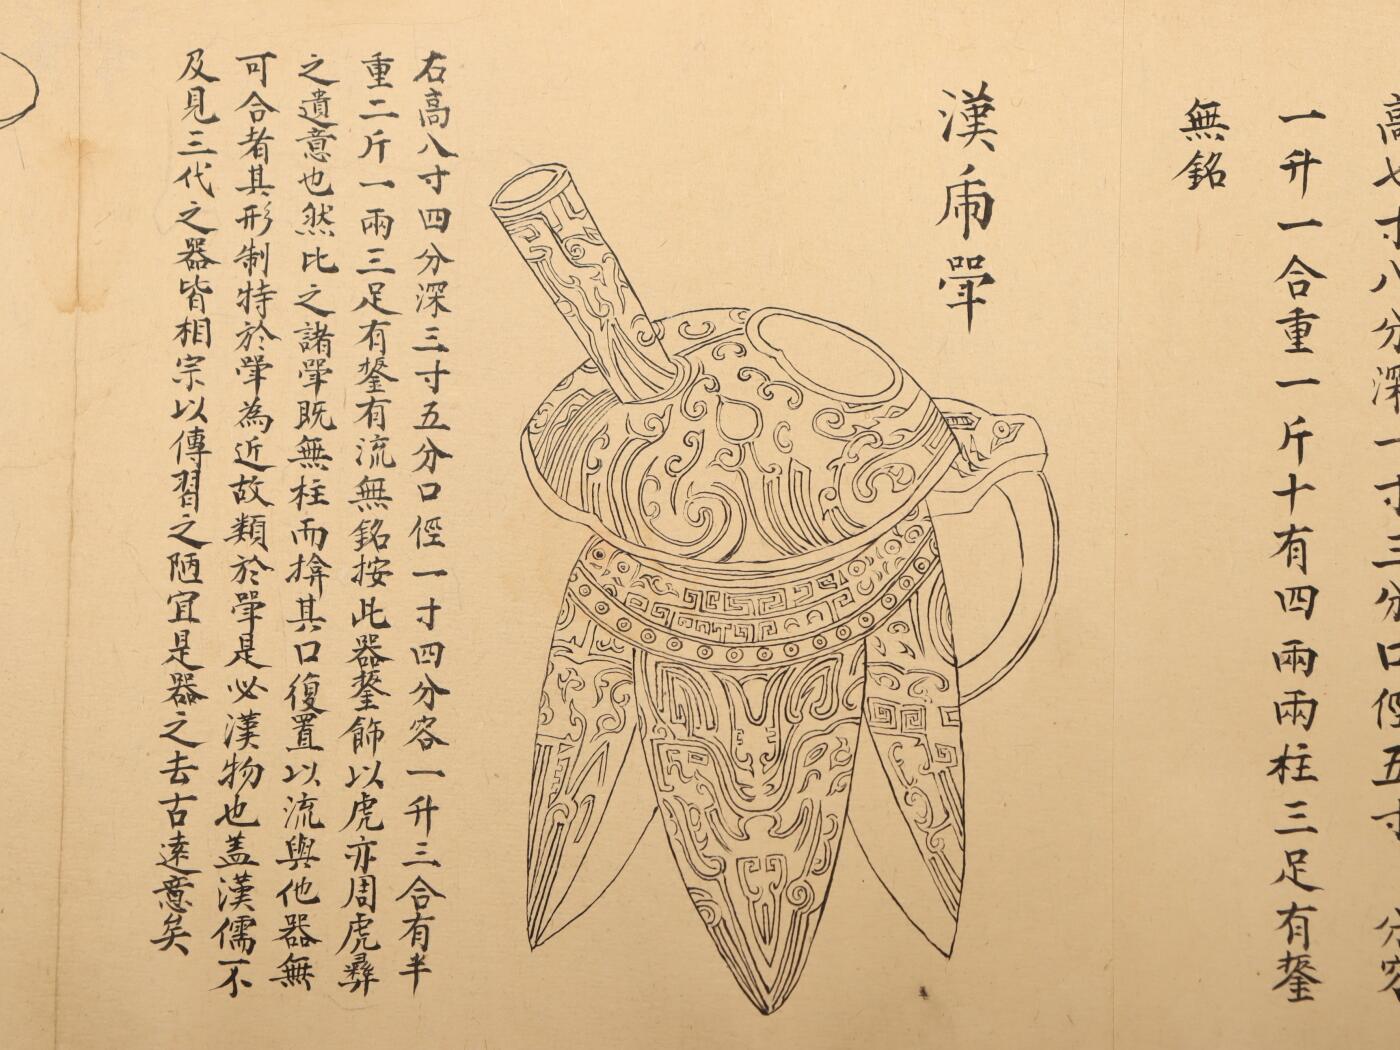 高七寸八分深一寸三分口徑五寸 分容
一升一合重一斤十有四兩兩柱三足有鋬
無銘
漢虎斝
右高八寸四分深三寸五分口徑一寸四分容一升三合有半
重二斤一兩三足有鋬有流無銘按此器鋬飾以虎亦周虎彝
之遺意也然比之諸斝既無柱而揜其口復置以流與他器無
可合者其形制特於斝為近故類於斝是必漢物也蓋漢儒不
及見三代之器皆相宗以傳習之陋宜是器之去古遠意矣